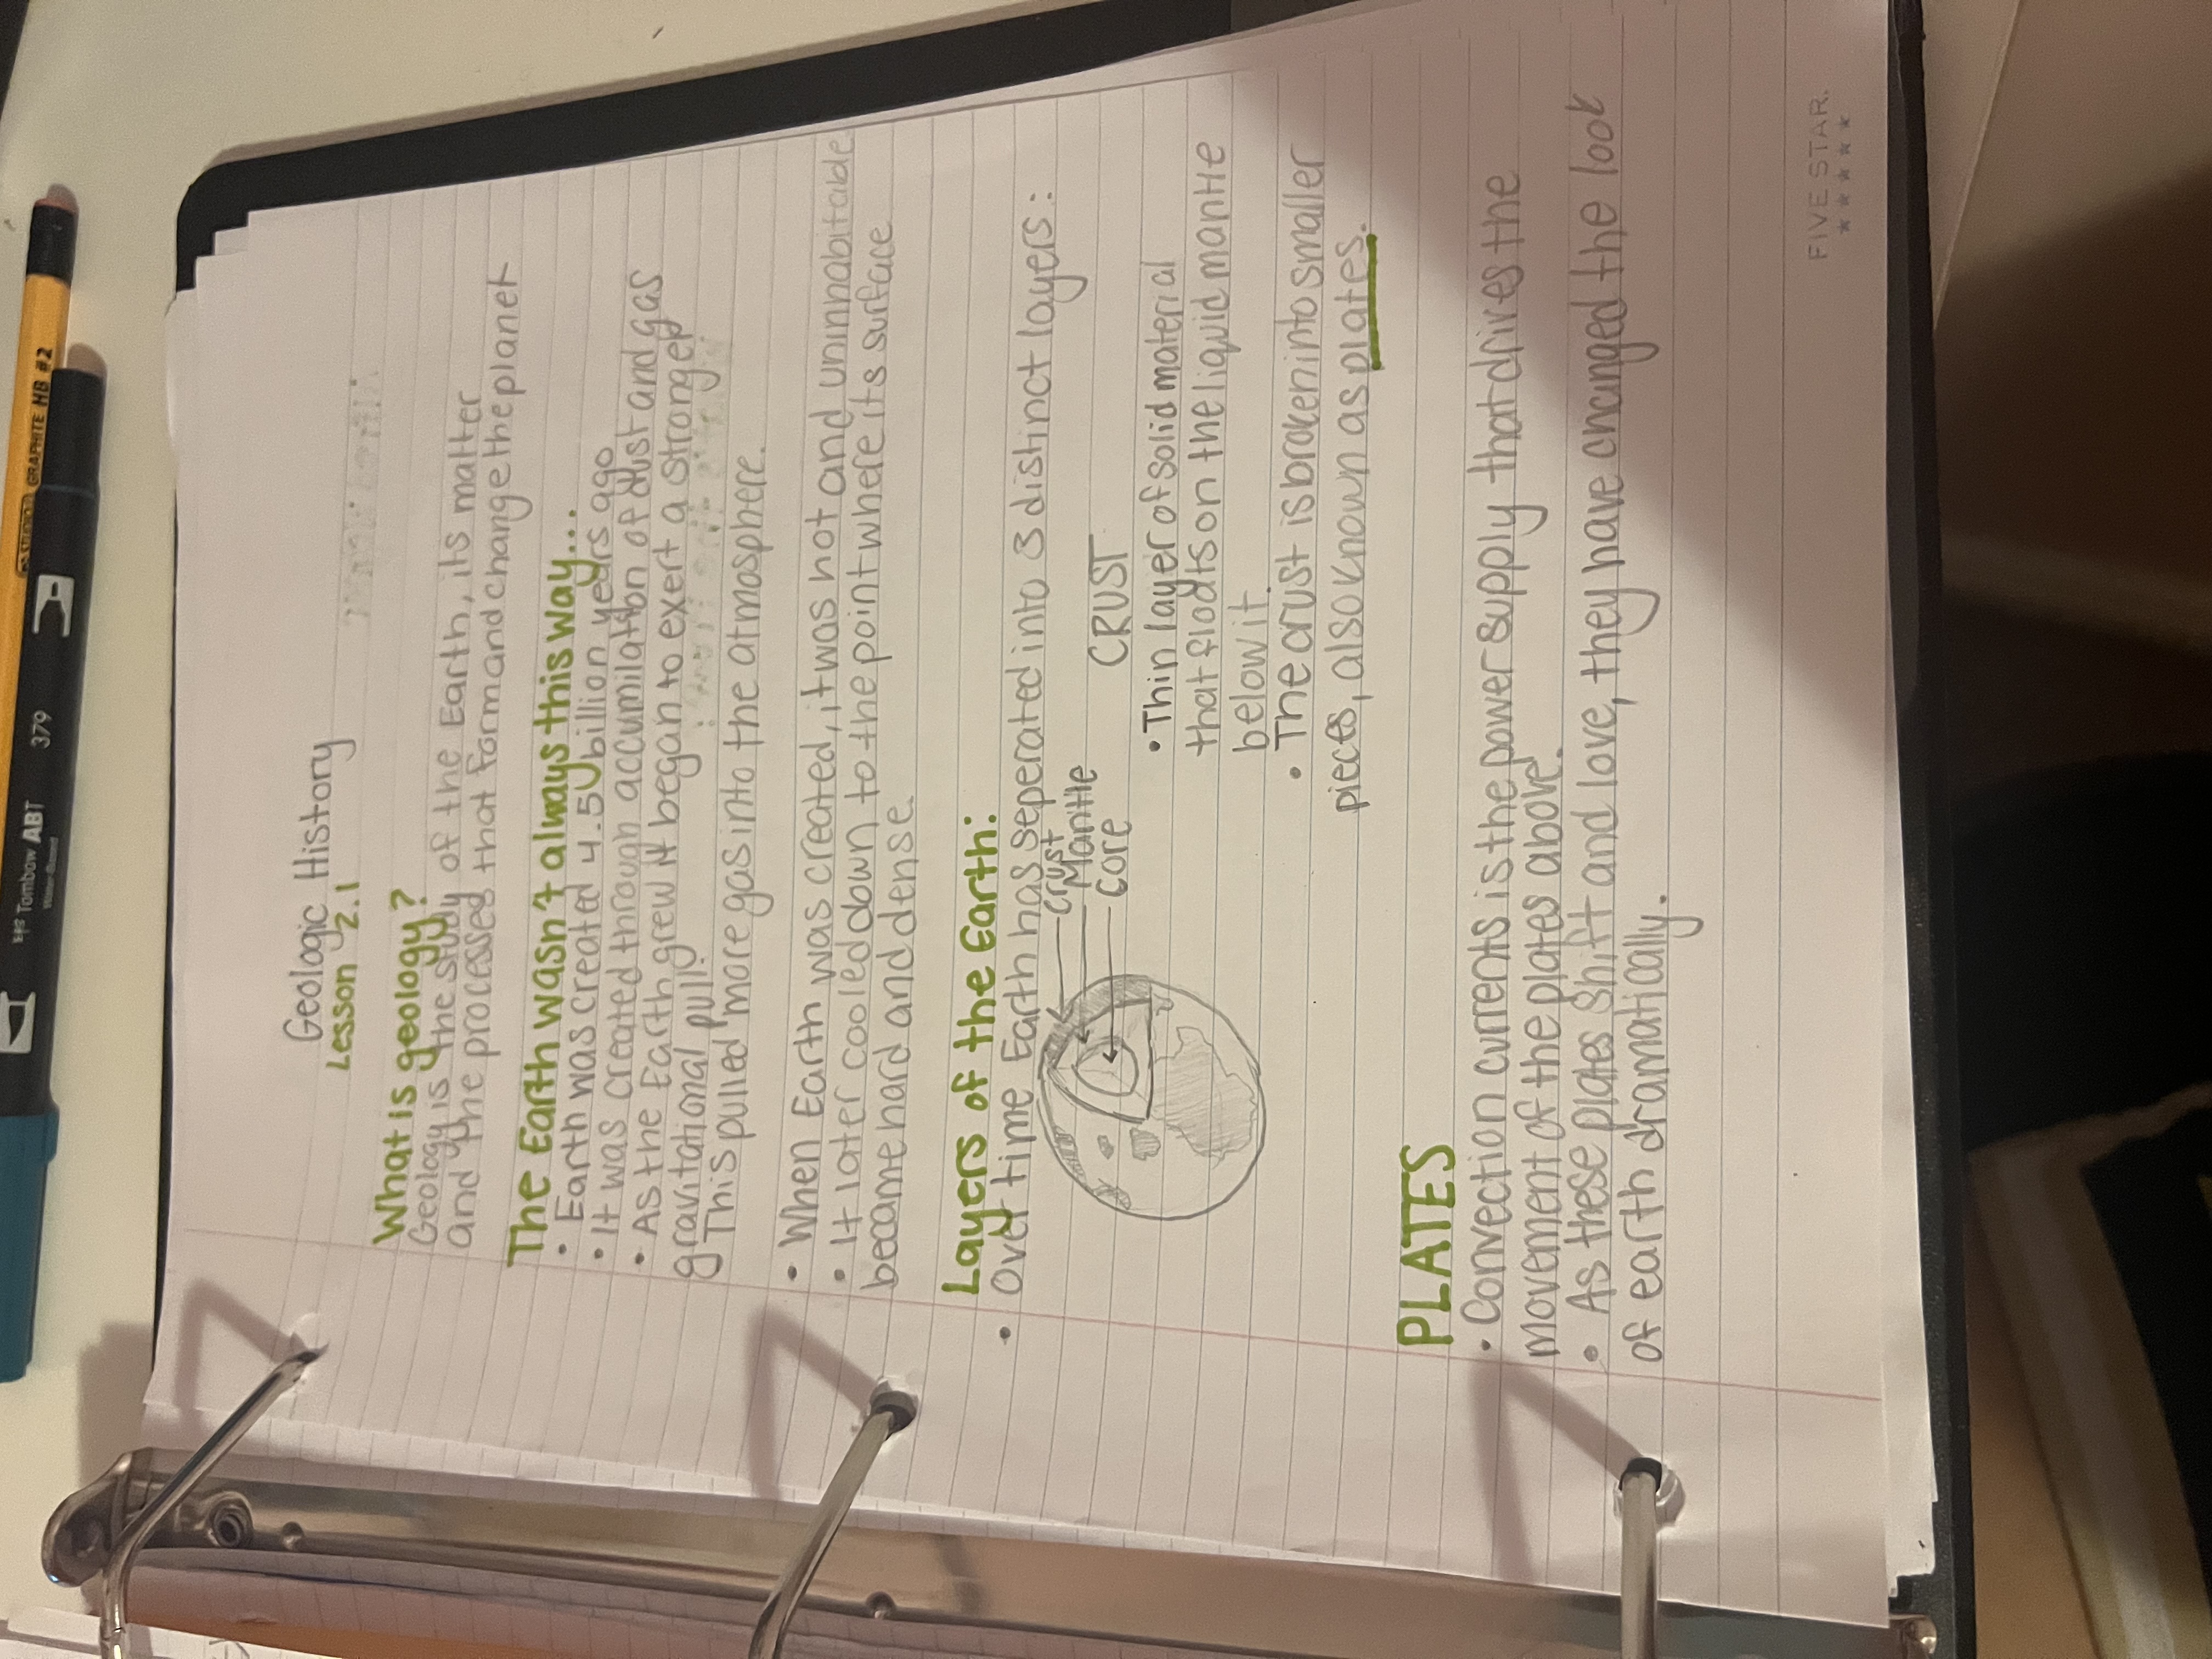 Tombow ABT 379
Water-Based
STUDIO GRAPHITE HB #2
Geologic History
Lesson 2.1
What is geology?
Geology is the study of the Earth, its matter
and the processes that form and change the planet
The Earth wasn't always this way...
• Earth was created 4.5 billion years ago
• It was created through accumilation of dust and gas
• As the Earth grew it began to exert a stronger
gravitational pull.
This pulled more gas into the atmosphere.
• When Earth was created, it was hot and uninhabitable
• It later cooled down to the point where its surface
became hard and dense.
Layers of the Earth:
• Over time Earth has seperated into 3 distinct layers:
Crust
Mantle
Core
CRUST
• Thin layer of solid material
that floats on the liquid mantle
below it.
• The crust is broken into smaller
pieces, also known as plates.
PLATES
• Convection currents is the power supply that drives the
movement of the plates above.
• As these plates shift and love, they have changed the look
of earth dramatically.
FIVE STAR.